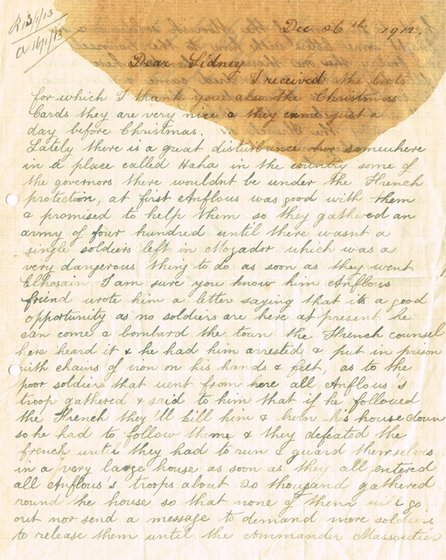 R 13/1/13
a 16/1/13
Dec 26th 1912
Dear Sidney
I received the boots
for which I thank you also the Christmas
Cards they are very nice & they came just a
day before Christmas.
Lately there is a great disturbance somewhere
in a place called Haha in the country some of
the governors there wouldnt be under the French
protection, at first Anflous was good with them
& promised to help them so they gathered an
army of four hundred until there wasnt a
single soldiers left in Mogador which was a
very dangerous thing to do as soon as they went
Elhosain I am sure you know him Anflous
friend wrote him a letter saying that its a good
opportunity as no soldiers are here at present he
can come & bombard the town the French counsel
here heard it & he had him arrested & put in prison
with chains of iron on his hands & feet, as to the
poor soldiers that went from here all Anflous's
troop gathered & said to him that if he followed
the French they'll kill him & burn his house down
so he had to follow them & they defeated the
french until they had to run & guard themselves
in a very large house as soon as they all entered
all Anflous's troops about 20 thousand gathered
round the house so that none of them will go
out nor send a message to demand more soldiers
to release them until the commander Massoutier